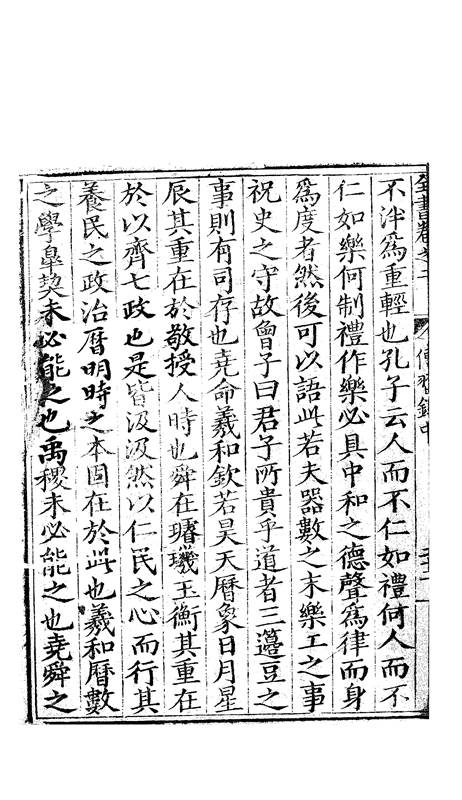 全書卷之二 傳習錄中
不泮爲重輕也孔子云人而不仁如禮何人而不
仁如樂何制禮作樂必具中和之德聲爲律而身
爲度者然後可以語此若夫器數之末樂工之事
祝史之守故曾子曰君子所貴乎道者三籩豆之
事則有司存也堯命羲和欽若昊天曆象日月星
辰其重在於敬授人時也舜在璿璣玉衡其重在
於以齊七政也是皆汲汲然以仁民之心而行其
養民之政治曆明時之本固在於此也羲和曆數
之學皐契未必能之也禹稷未必能之也堯舜之